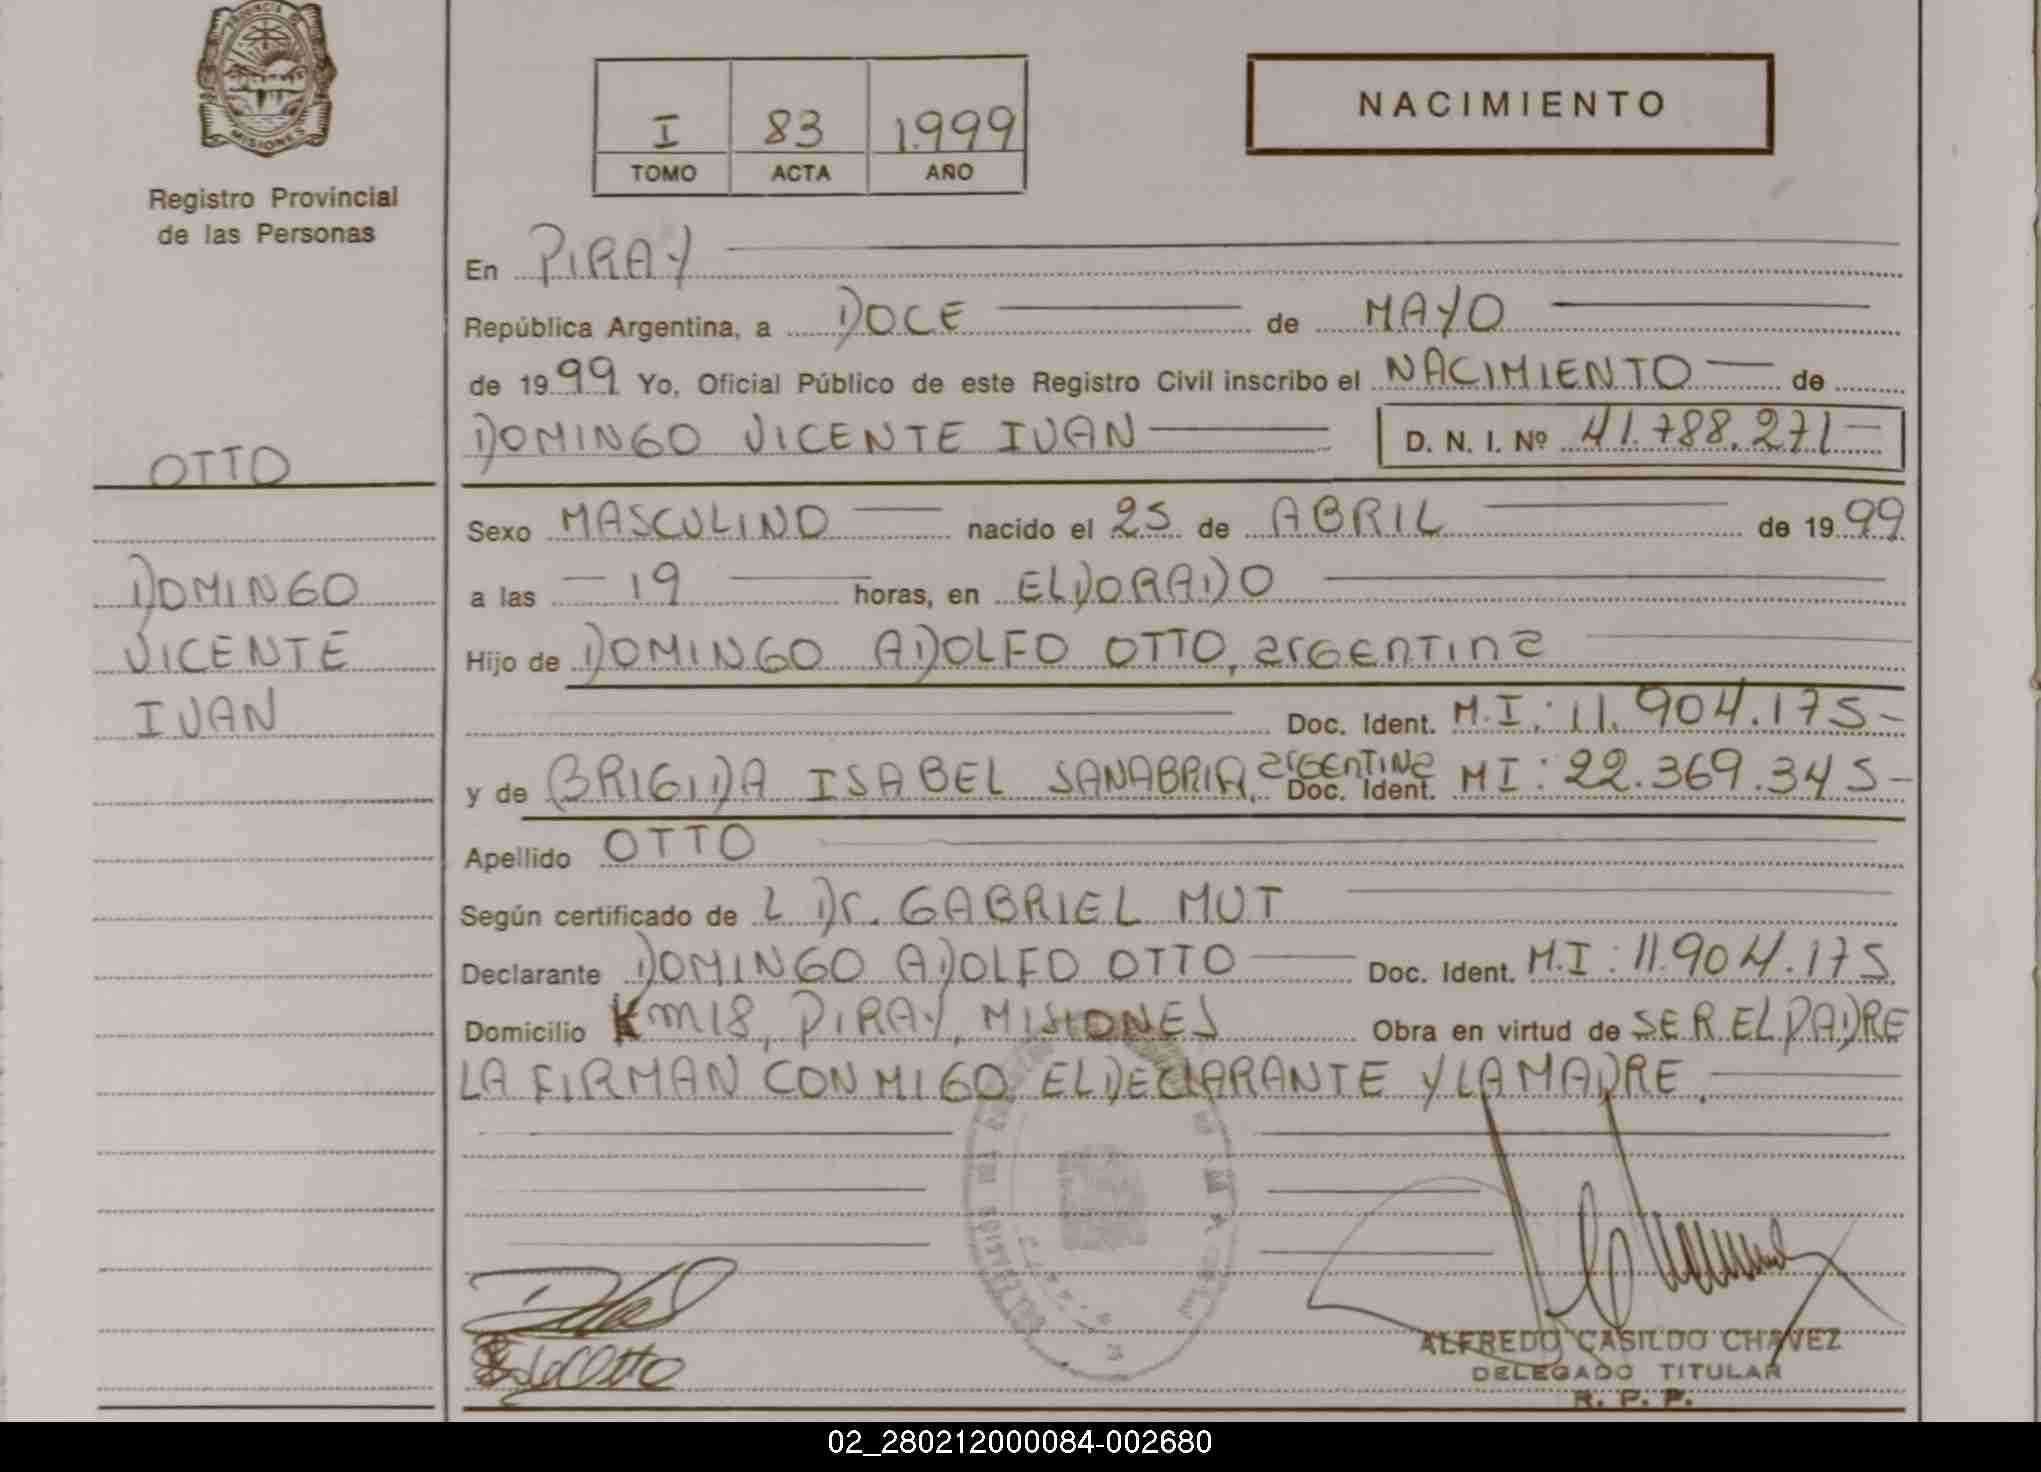 PROVINCIA DE
MISIONES
Registro Provincial
de las Personas
OTTO
DOMINGO
VICENTE
IVAN
I 83 1.999
TOMO ACTA AÑO
NACIMIENTO
En PIRAY
República Argentina, a DOCE de MAYO
de 1999 Yo, Oficial Público de este Registro Civil inscribo el NACIMIENTO de
DOMINGO VICENTE IVAN D. N. I. Nº 41.788.271
Sexo MASCULINO nacido el 25 de ABRIL de 1999
a las 19 horas, en ELDORADO
Hijo de DOMINGO ADOLFO OTTO, argentina
Doc. Ident. M.I.: 11.904.175-
y de BRIGIDA ISABEL SANABRIA, argentina Doc. Ident. MI: 22.369.345-
Apellido OTTO
Según certificado de L Dr. GABRIEL MUT
Declarante DOMINGO ADOLFO OTTO Doc. Ident. M.I: 11.904.175
Domicilio Km18, PIRAY, MISIONES Obra en virtud de SER EL PADRE
LA FIRMAN CONMIGO EL DECLARANTE Y LA MADRE.
ALFREDO CASILDO CHAVEZ
DELEGADO TITULAR
R. P. P.
02_280212000084-002680